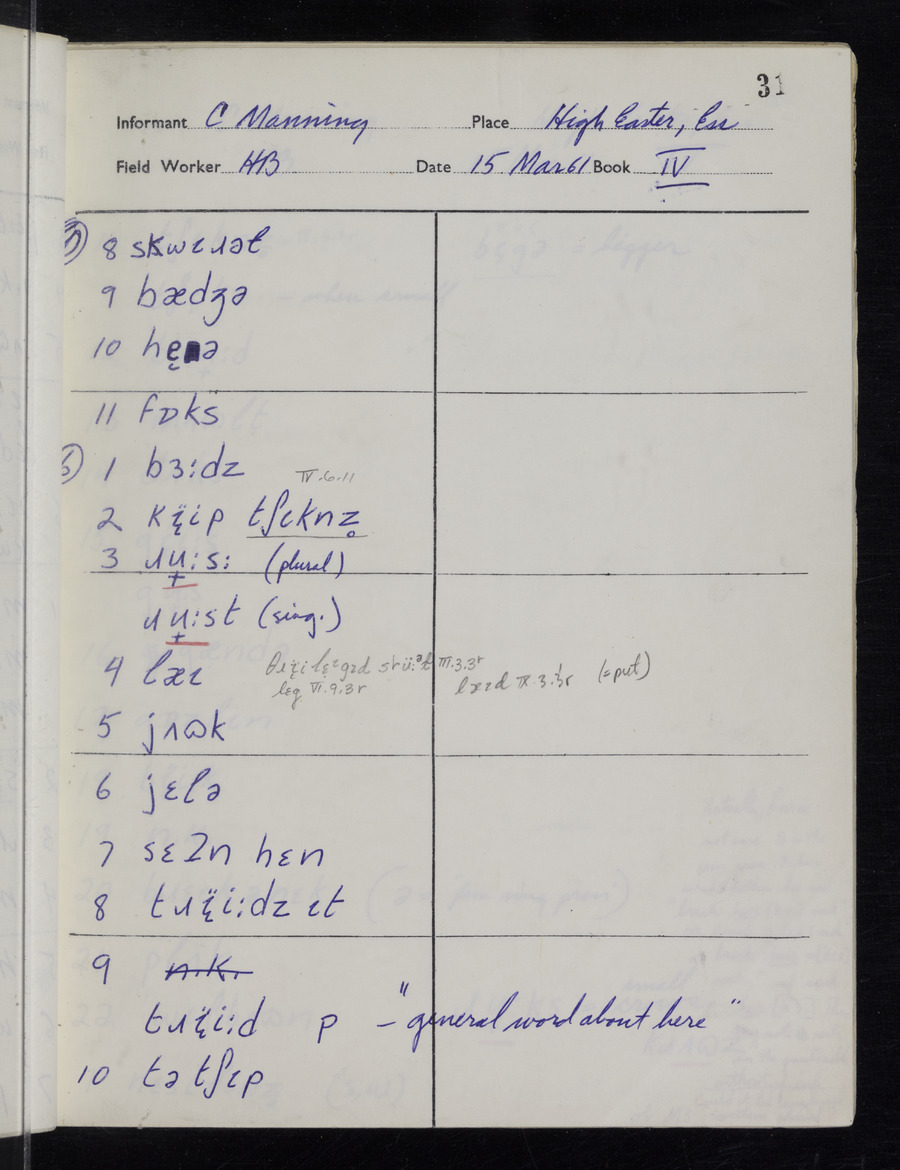 31
Informant C Manning Place High Easter, Ess
Field Worker HB Date 15 Mar 61 Book IV
5
8 skwɪɹət
9 bædʒə
10 hę ə
11 fɒks
6
1 bɜ:dz IV.6.11
2 kɪ̈ip tʃɪknz̥
3 ɹu̟:s: (plural)
ɹu̟:st (sing.)
4 læɪ III.3.3r læɪd IX.3.3r (=put)
lɛg VI.9.3r
5 jʌɷk
6 jɛlə
7 sɛʔn hɛn
8 tɹɪ̈i:dz ɪt
9 n.k.
tɹɪ̈i:d p – "general word about here"
10 tə tʃɪp